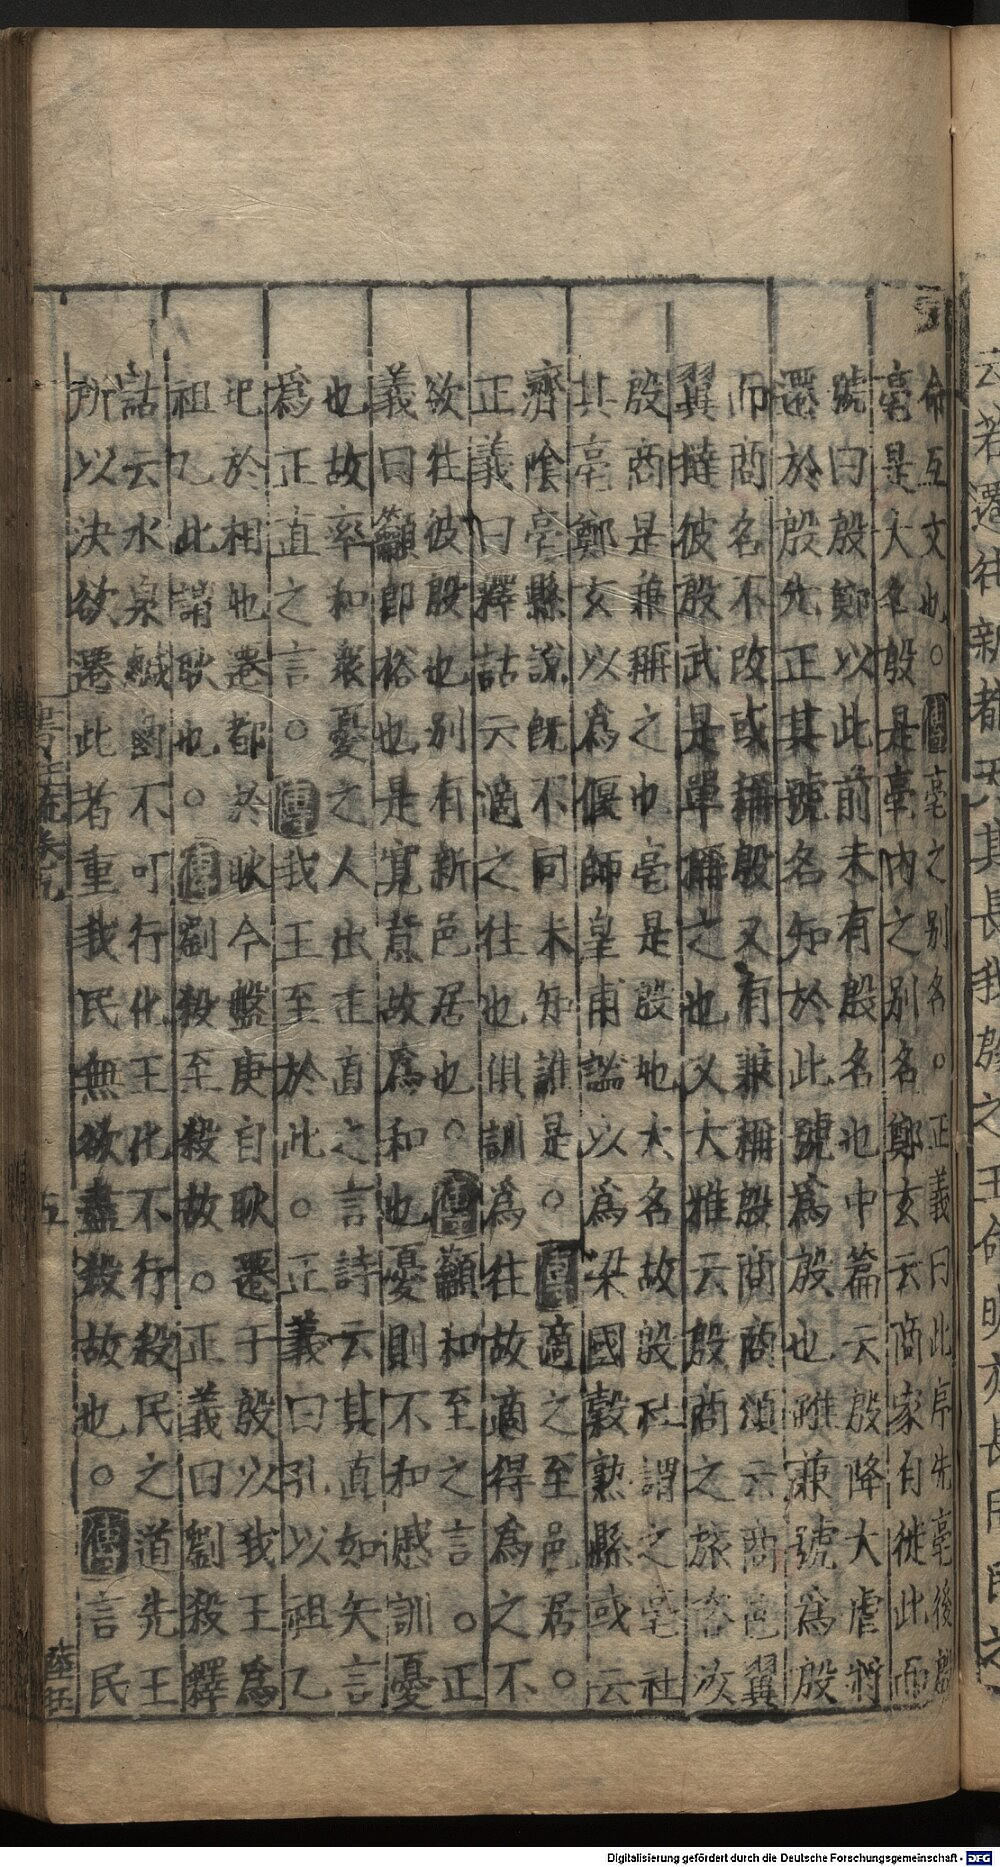 命互文也。傳亳之別名。正義曰此序先亳後殷
亳是大名殷是亳內之別名鄭玄云商家自徙此而
號曰殷鄭以此前未有殷名也中篇云殷降大虐將
遷於殷先正其號名知於此號為殷也雖兼號為殷
而商名不改或稱殷又有兼稱殷商商頌云商邑翼
翼撻彼殷武是單稱之也又大雅云殷商之旅咨汝
殷商是兼稱之也亳是殷地大名故殷社謂之亳社
其亳鄭玄以為偃師皇甫謐以為梁國穀熟縣或云
濟陰亳縣說既不同未知誰是。傳適之至邑居。
正義曰釋詁云適之往也俱訓為往故適得為之不
欲往彼殷也別有新邑居也。傳籲和至之言。正
義曰籲即裕也是寬意故為和也憂則不和慼訓憂
也故率和衆憂之人出正直之言詩云其直如矢言
爲正直之言。傳我王至於此。正義曰孔以祖乙
圮於相地遷都於耿今盤庚自耿遷于殷以我王爲
祖乙此謂耿也。傳劉殺至殺故。正義曰劉殺釋
詁云水泉鹹鹵不可行化王化不行殺民之道先王
所以決欲遷此者重我民無欲盡殺故也。傳言民
五
Digitalisierung gefördert durch die Deutsche Forschungsgemeinschaft - DFG